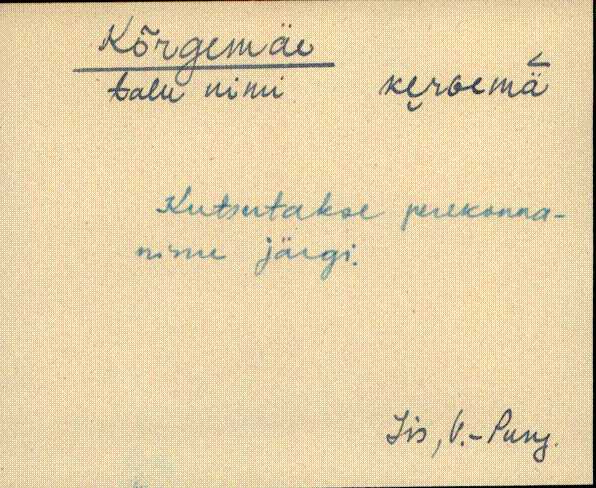 Kõrgemäe
talu nimi kẹrɢemä̆
Kutsutakse perekonna-
nime järgi.
Iis, V.-Pung.